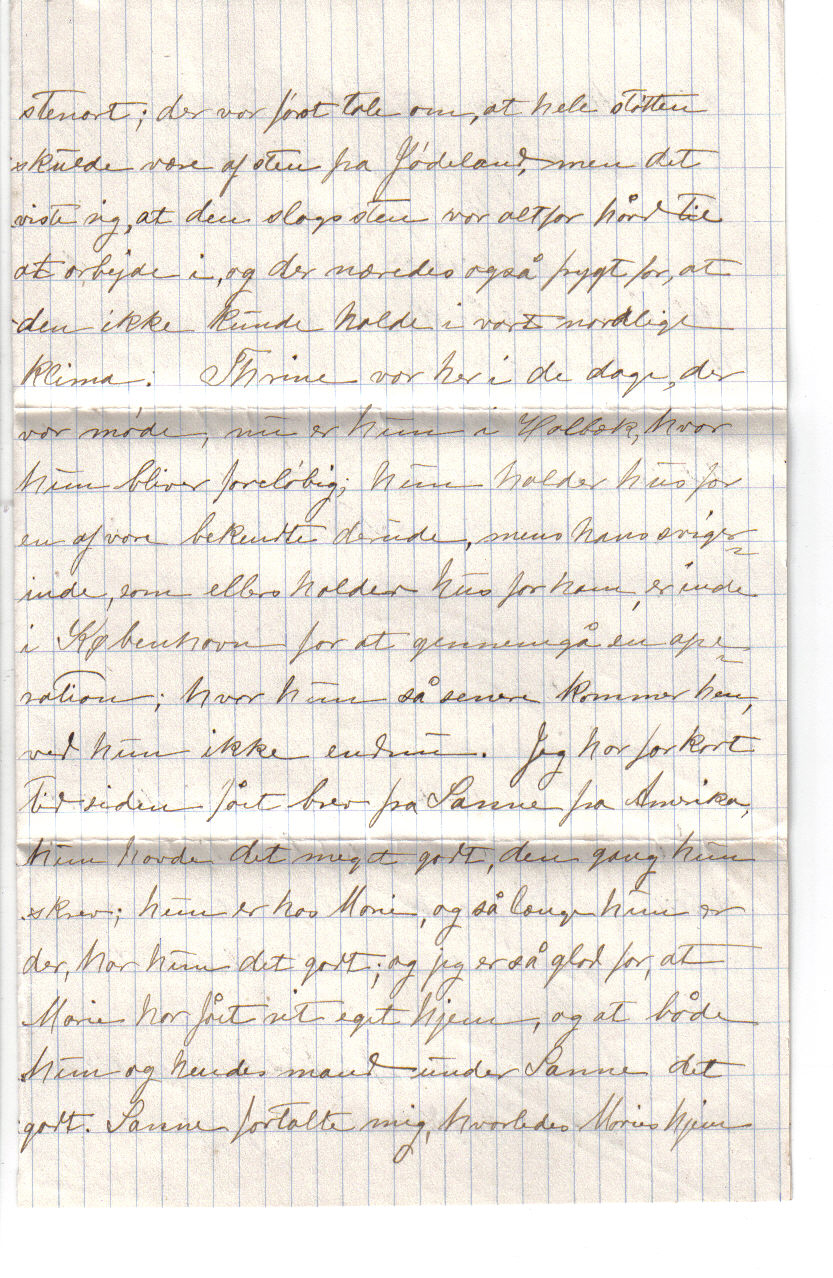 stenart; der var først tale om, at hele støtten
skulde være af sten fra Jødeland, men det
viste sig, at den slags sten var altfor hård til
at arbejde i, og der næredes også frygt for, at
den ikke kunde holde i vort nordlige
klima. Thrine var her i de dage, der
var møde, nu er hun i Holbæk, hvor
hun bliver foreløbig; hun holder hus for
en af vore bekendte derude, mens hans sviger=
inde, som ellers holder hus for ham, er inde
i København for at gennemgå en ope=
ration; hvor hun så senere kommer hen,
ved hun ikke endnu. Jeg har for kort
tid siden fået brev fra Sanne fra Amerika,
hun havde det meget godt, den gang hun
skrev; hun er hos Marie, og så længe hun er
der, har hun det godt; og jeg er så glad for, at
Marie har fået sit eget hjem, og at både
hun og hendes mand under Sanne det
godt. Sanne fortalte mig, hvorledes Maries hjem